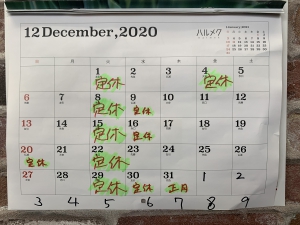 12 December, 2020 ハルメク
1 2 3 4 5
定休 定休
6 7 8 9 10 11 12
定休 定休
13 14 15 16 17 18 19
定休 定休
20 21 22 23 24 25 26
定休 定休
27 28 29 30 31 1 2
定休 定休 正月
3 4 5 6 7 8 9